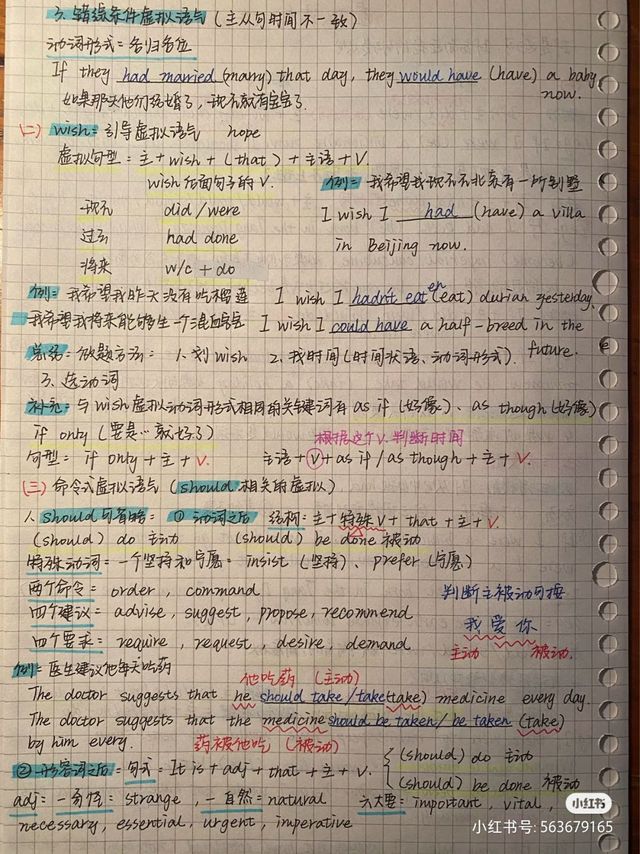 3. 错综条件虚拟语气（主从句时间不一致）
动词形式=各归各位
If they had married (marry) that day, they would have (have) a baby now.
如果那天他们结婚了，现在就有宝宝了.
(二) wish=引导虚拟语气 hope
虚拟句型=主+wish+(that)+主语+V.
wish后面句子的V.
例=我希望我现在在北京有一所别墅
现在 did/were
I wish I had (have) a villa
过去 had done
in Beijing now.
将来 w/c+do
例=我希望我昨天没有吃榴莲 I wish I hadn't eaten (eat) durian yesterday.
我希望我将来能够生一个混血宝宝 I wish I could have a half-breed in the future.
总结=做题方法= 1. 划wish 2. 找时间(时间状语、动词形式).
3. 选动词
补充=与wish虚拟动词形式相同的关键词有 as if (好像)、as though (好像)
if only (要是…就好了)
根据这个V.判断时间
句型= if only+主+V. 主语+V+as if/as though+主+V.
(三) 命令式虚拟语气 (should相关的虚拟)
1. should可省略= ① 动词之后 结构=主+特殊V+that+主+V.
(should) do 主动 (should) be done 被动
特殊动词=一个坚持和宁愿= insist (坚持)、prefer (宁愿)
两个命令= order, command
判断主被动可换
四个建议= advise, suggest, propose, recommend
我爱你
四个要求= require, request, desire, demand
主动 被动.
例=医生建议他每天吃药
他吃药 (主动)
The doctor suggests that he should take/take (take) medicine every day.
The doctor suggests that the medicine should be taken/be taken (take)
by him every.
药被他吃 (被动)
② 形容词之后=句式= It is+adj+that+主+V.
(should) do 主动
(should) be done 被动
adj=一奇怪= strange, 一自然= natural 六大要= important, vital,
necessary, essential, urgent, imperative
小红书
小红书号: 563679165